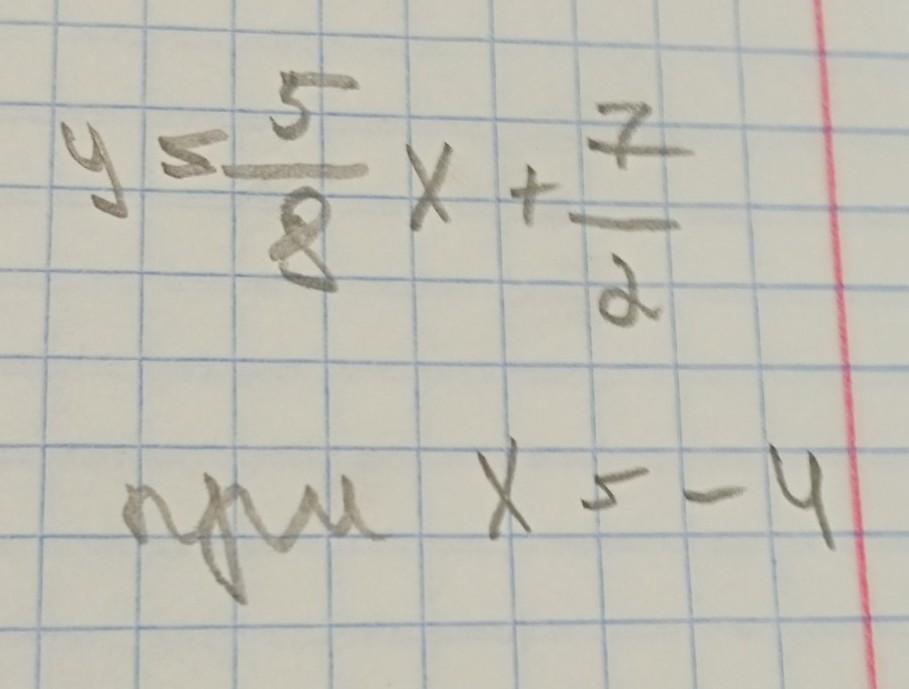 y = 5/8 x + 7/2
при x = -4